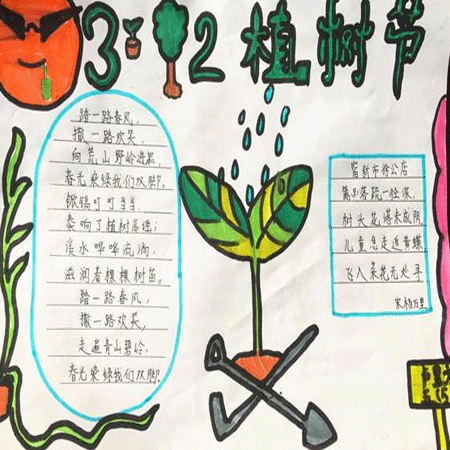 3 12 植树节
踏一路春风,
撒一路欢笑,
向荒山野岭进军,
春光染绿我们双脚。
锹镐叮叮当当,
奏响了植树歌谣;
水哗哗流淌,
滋润着棵棵树苗。
踏一路春风,
撒一路欢笑,
走遍青山碧岭,
春光染绿我们双脚。
宿新市徐公店
落疏一径深
树头花落未成阴
儿童急走追黄蝶
飞入菜花无处寻
宋 杨万里